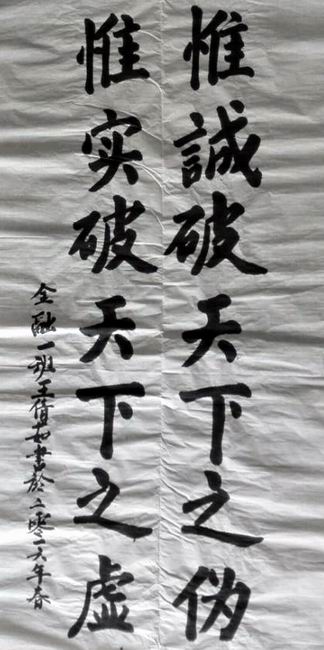 惟誠破天下之伪
惟实破天下之虚
金融一班王倩茹書於二零二六年春